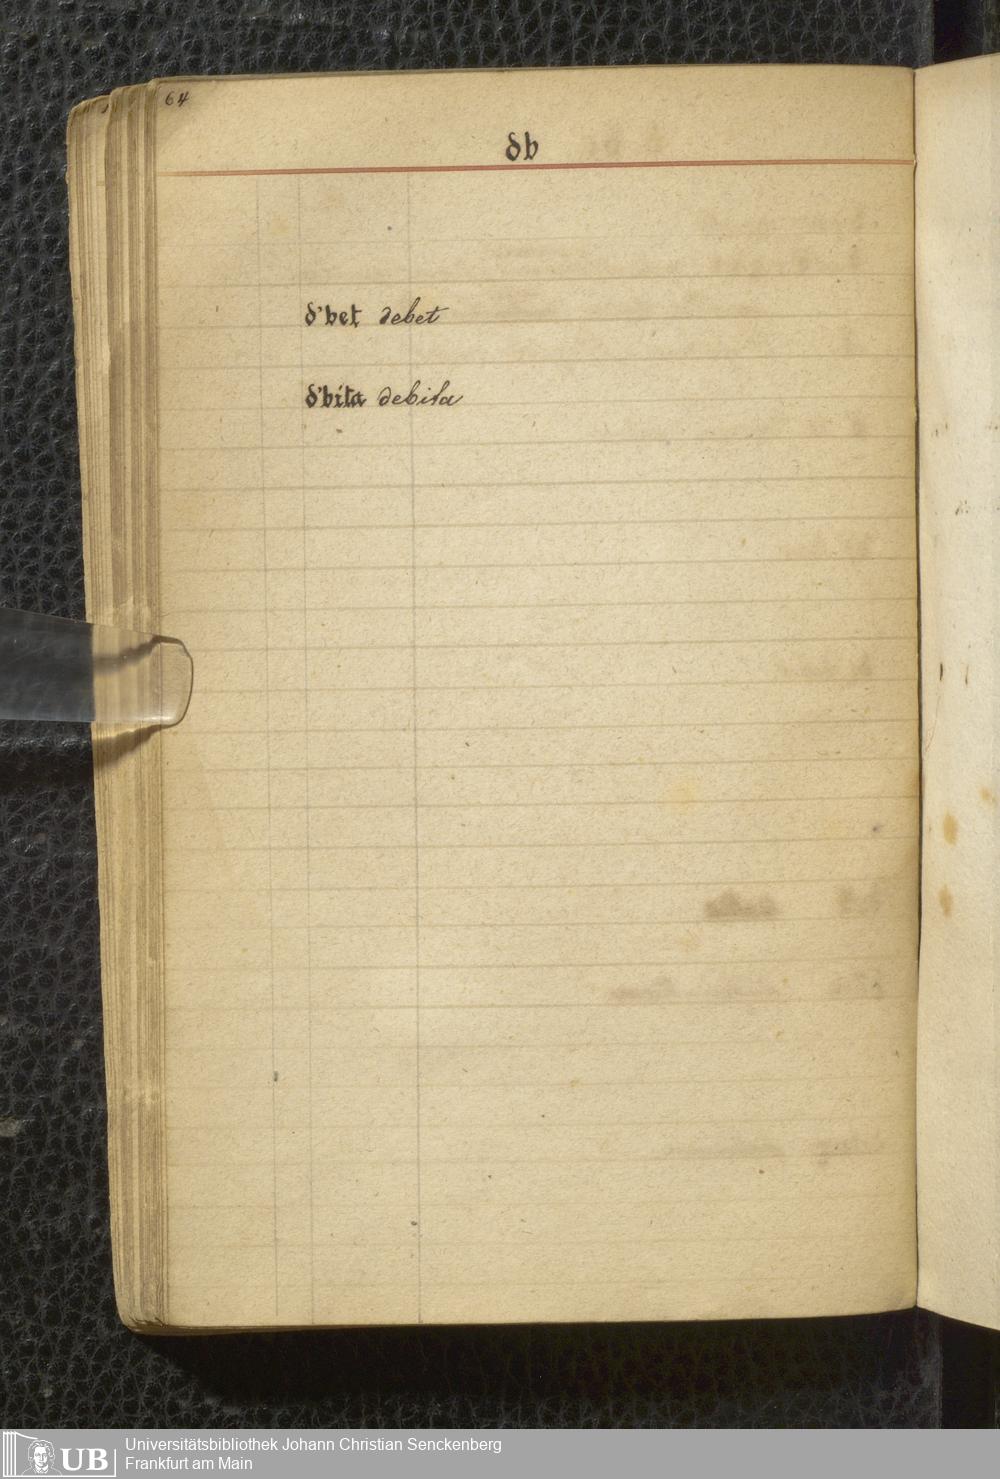 64
db
d'bet debet
d'bita debita
UB
Universitätsbibliothek Johann Christian Senckenberg
Frankfurt am Main